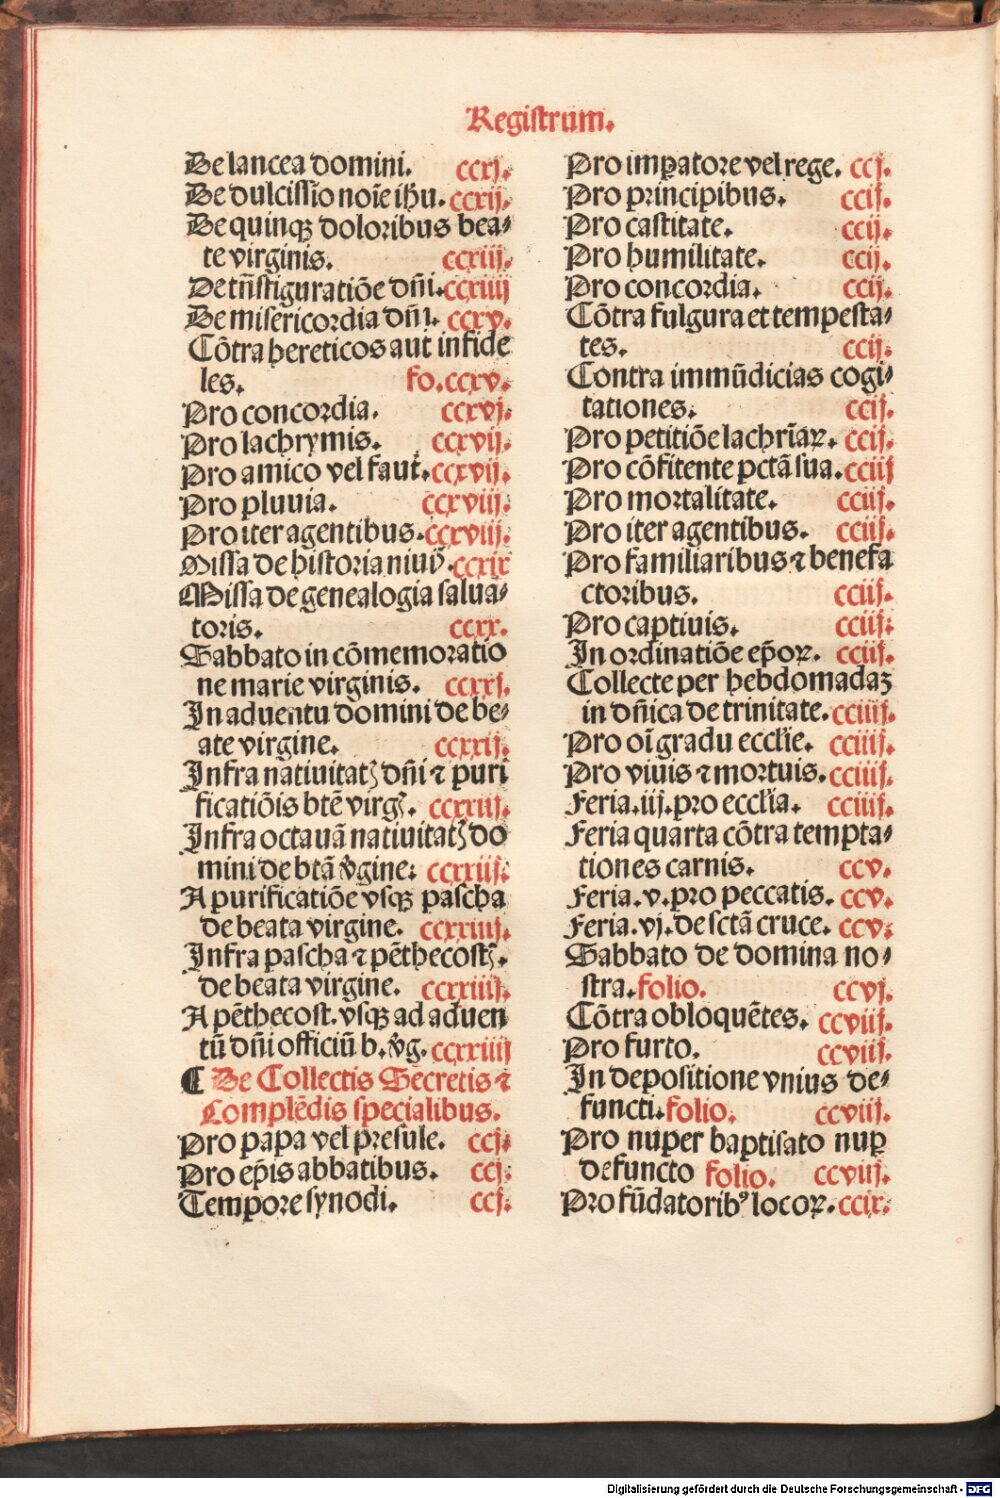 Registrum.
De lancea domini. ccxj.
De dulcissĩo noĩe ihũ. ccxij.
De quinqꝫ doloribus bea⸗
te virginis. ccxiij.
De trãsfiguratiõe dñi. ccxiiij
De misericordia dñi. ccxv.
Cõtra hereticos aut infide
les. fo. ccxv.
Pro concordia. ccxvj.
Pro lachrymis. ccxvij.
Pro amico vel faut. ccxvij.
Pro pluuia. ccxviij.
Pro iter agentibus. ccxviij.
Missa de historia niuiũ. ccxix
Missa de genealogia salua⸗
toris. ccxx.
Sabbato in cõmemoratio
ne marie virginis. ccxxj.
In aduentu domini de be⸗
ate virgine. ccxxij.
Infra natiuitatꝭ dñi ⁊ puri
ficatiõis btẽ virgꝭ. ccxxiij.
Infra octauã natiuitatꝭ do
mini de btã v̾gine. ccxxiij.
A purificatiõe vsqꝫ pascha
de beata virgine. ccxxiiij.
Infra pascha ⁊ pẽthecostꝭ.
de beata virgine. ccxxiiij.
A pẽthecost. vsqꝫ ad aduen
tũ dñi officiũ b. v̾g. ccxxiiij
¶ De Collectis Secretis ⁊
Complẽdis specialibus.
Pro papa vel presule. ccj.
Pro ep̃is abbatibus. ccj.
Tempore synodi. ccj.
Pro imꝑatore vel rege. ccj.
Pro principibus. ccij.
Pro castitate. ccij.
Pro humilitate. ccij.
Pro concordia. ccij.
Cõtra fulgura et tempesta⸗
tes. ccij.
Contra immũdicias cogi⸗
tationes. ccij.
Pro petitiõe lachrĩaꝝ. ccij.
Pro cõfitente pctã sua. cciij
Pro mortalitate. cciij.
Pro iter agentibus. cciij.
Pro familiaribus ⁊ benefa
ctoribus. cciij.
Pro captiuis. cciij.
In ordinatiõe ep̃oꝝ. cciij.
Collecte per hebdomadaꝫ
in dñica de trinitate. cciiij.
Pro oĩ gradu eccl̃ie. cciiij.
Pro viuis ⁊ mortuis. cciiij.
Feria. iij. pro eccl̃ia. cciiij.
Feria quarta cõtra tempta⸗
tiones carnis. ccv.
Feria. v. pro peccatis. ccv.
Feria. vj. de sctã cruce. ccv.
Sabbato de domina no⸗
stra. folio. ccvj.
Cõtra obloquẽtes. ccviij.
Pro furto. ccviij.
In depositione vnius de⸗
functi. folio. ccviij.
Pro nuper baptisato nuꝑ
defuncto folio. ccviij.
Pro fũdatoribꝰ locoꝝ. ccix.
Digitalisierung gefördert durch die Deutsche Forschungsgemeinschaft - DFG